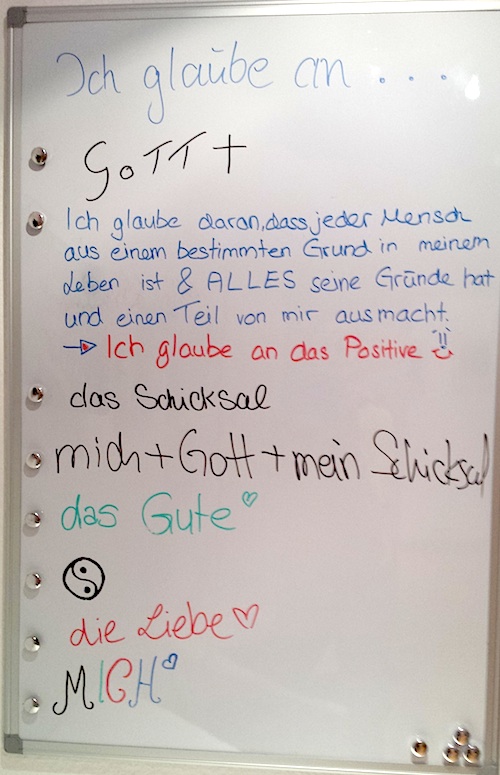 Ich glaube an...
GOTT †
Ich glaube daran, dass jeder Mensch
aus einem bestimmten Grund in meinem
Leben ist & ALLES seine Gründe hat
und einen Teil von mir ausmacht.
→ Ich glaube an das Positive
das Schicksal
mich + Gott + mein Schicksal
das Gute ♡
☯
die Liebe ♡
MICH ♡